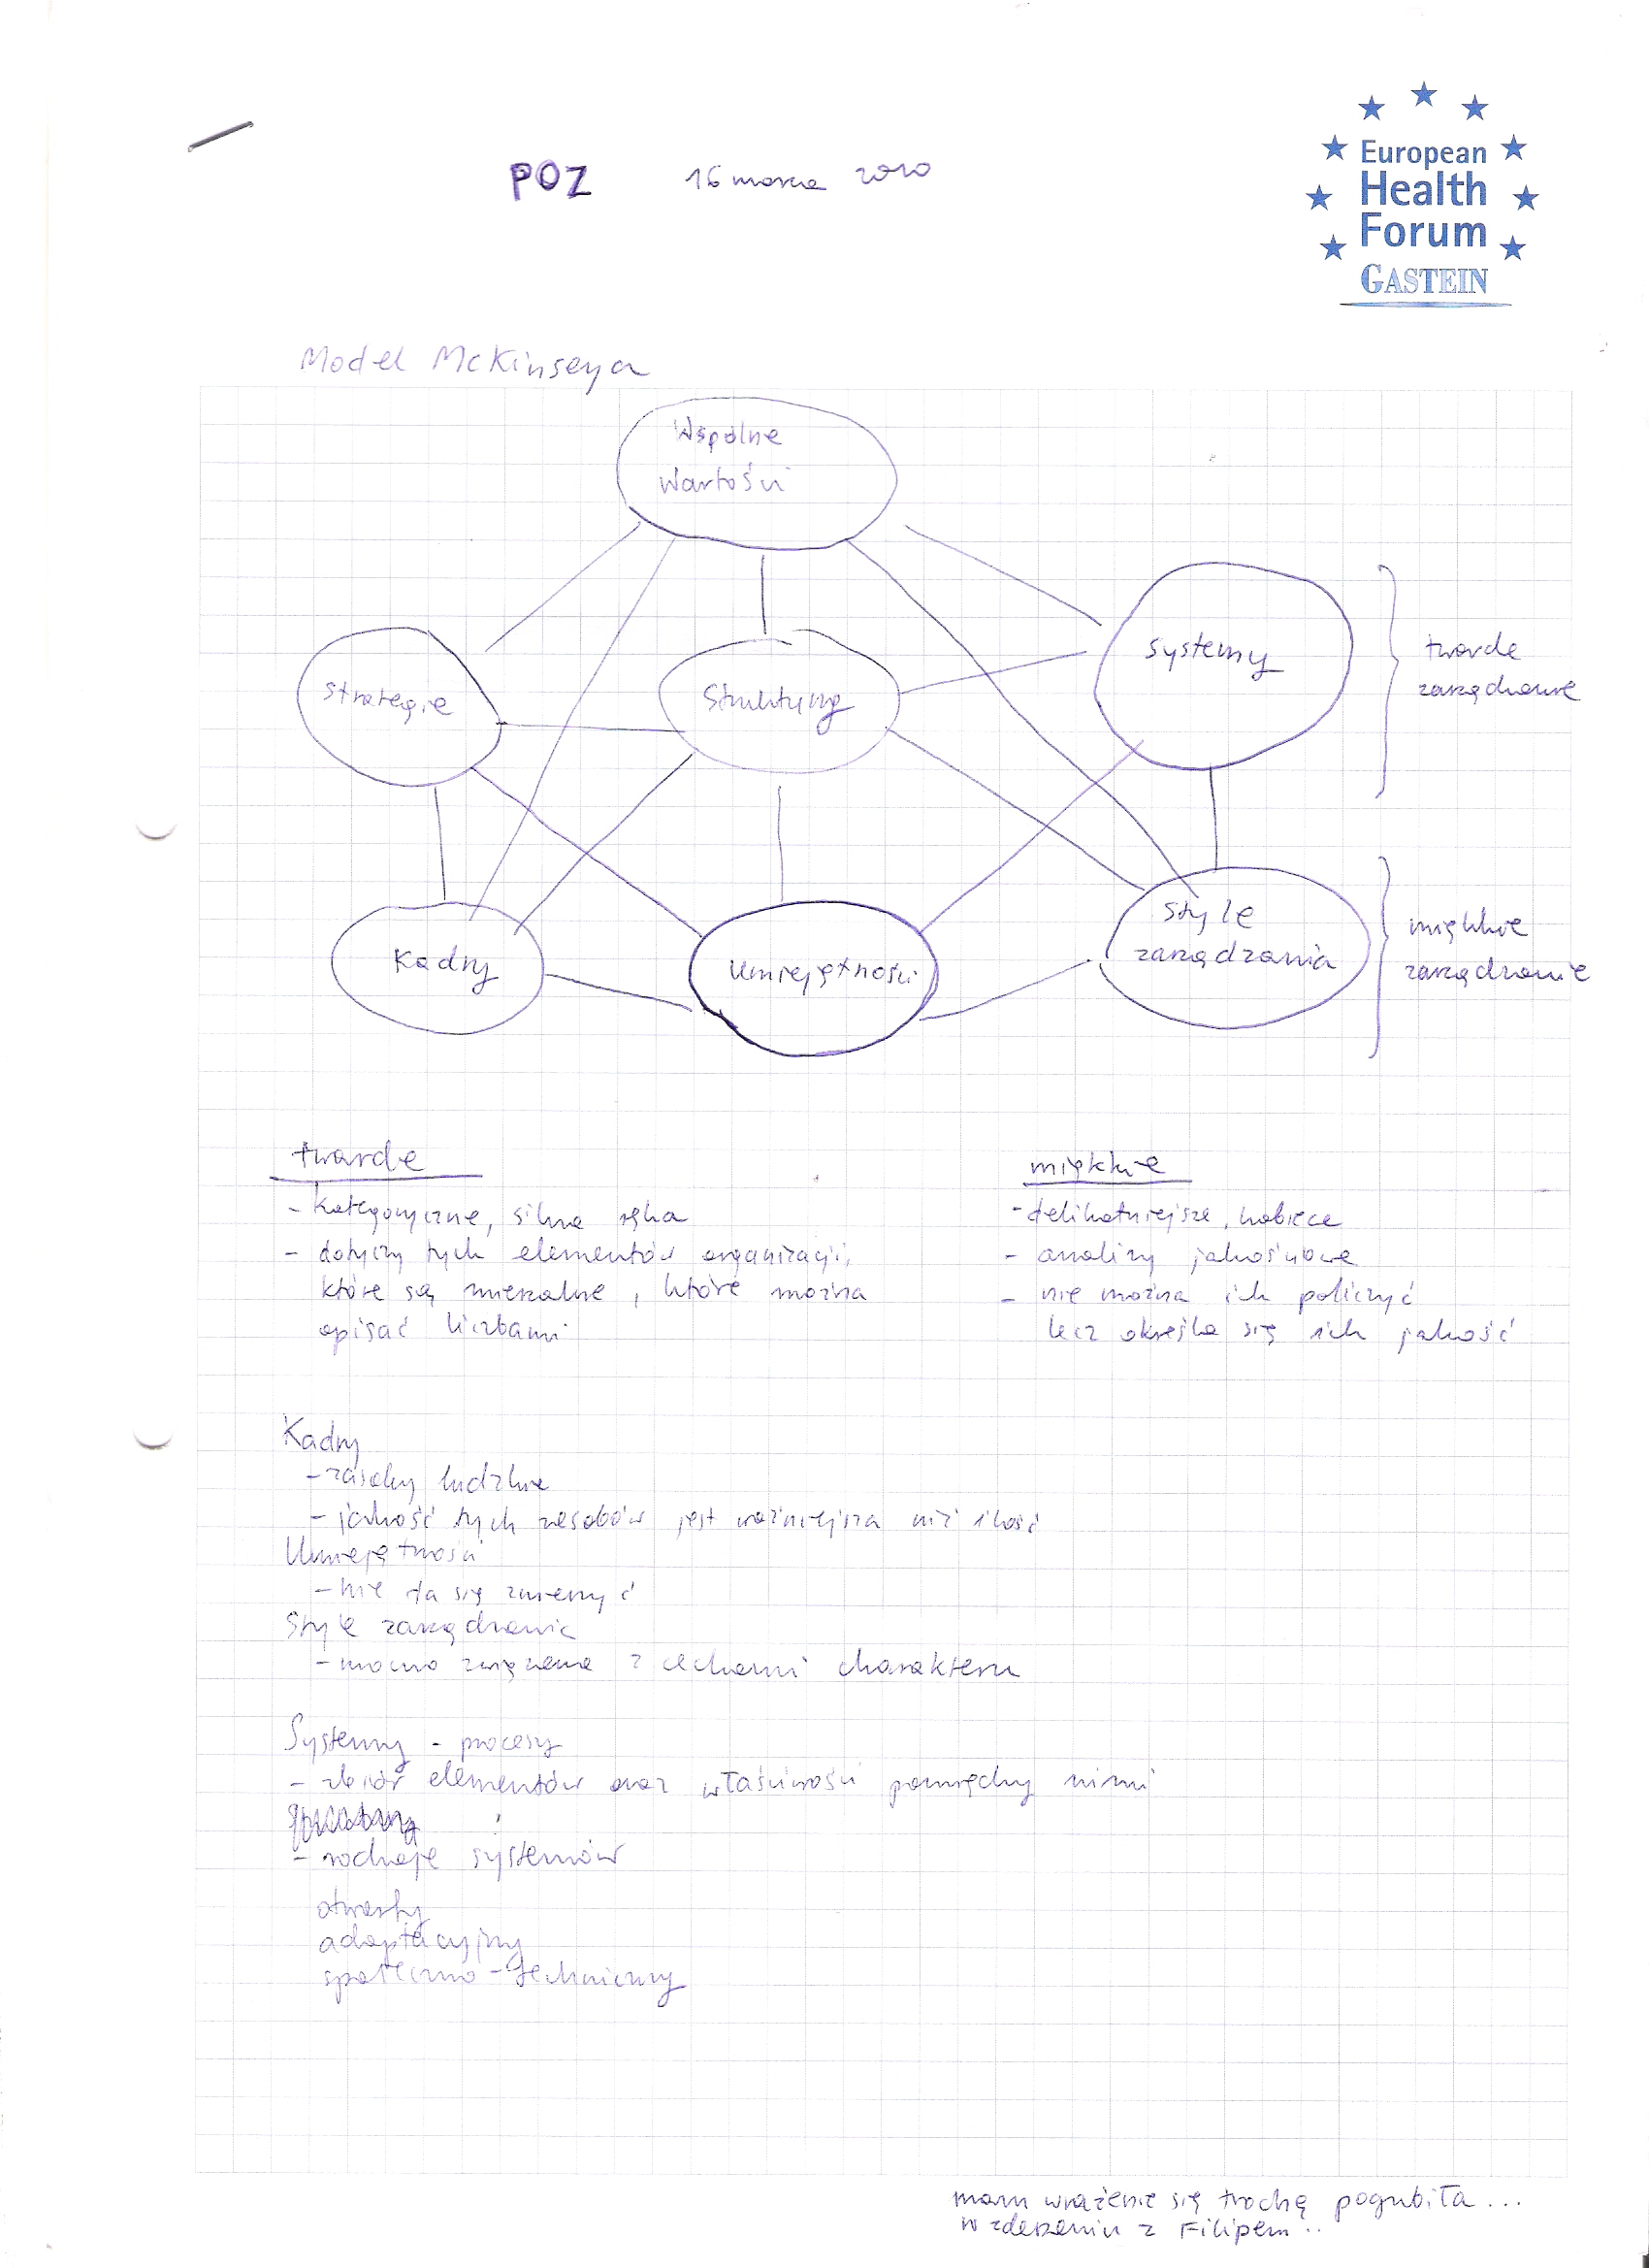 POZ 16 marca 2010
European
Health
Forum
GASTEIN
Model McKinseya
Wspólne
Wartości
Systemy
Strategie
Struktury
twarde
zarządzanie
Kadry
Umiejętności
Style
zarządzania
miękkie
zarządzanie
twarde
- kategoryczne, silna ręka
- dotyczy tych elementów organizacji,
które są mierzalne, które można
opisać liczbami
miękkie
- delikatniejsze, kobiece
- analizy jakościowe
- nie można ich policzyć
lecz określa się ich jakość
Kadry
- zasoby ludzkie
- jakość tych zasobów jest ważniejsza niż ilość
Umiejętności
- nie da się zmierzyć
Style zarządzania
- mocno związane z cechami charakteru
Systemy - procesy
- zbiór elementów oraz właściwości pomiędzy nimi
- rodzaje systemów
otwarty
adaptacyjny
społeczno-techniczny
mam wrażenie się trochę pogubiła...
w zderzeniu z Filipem..